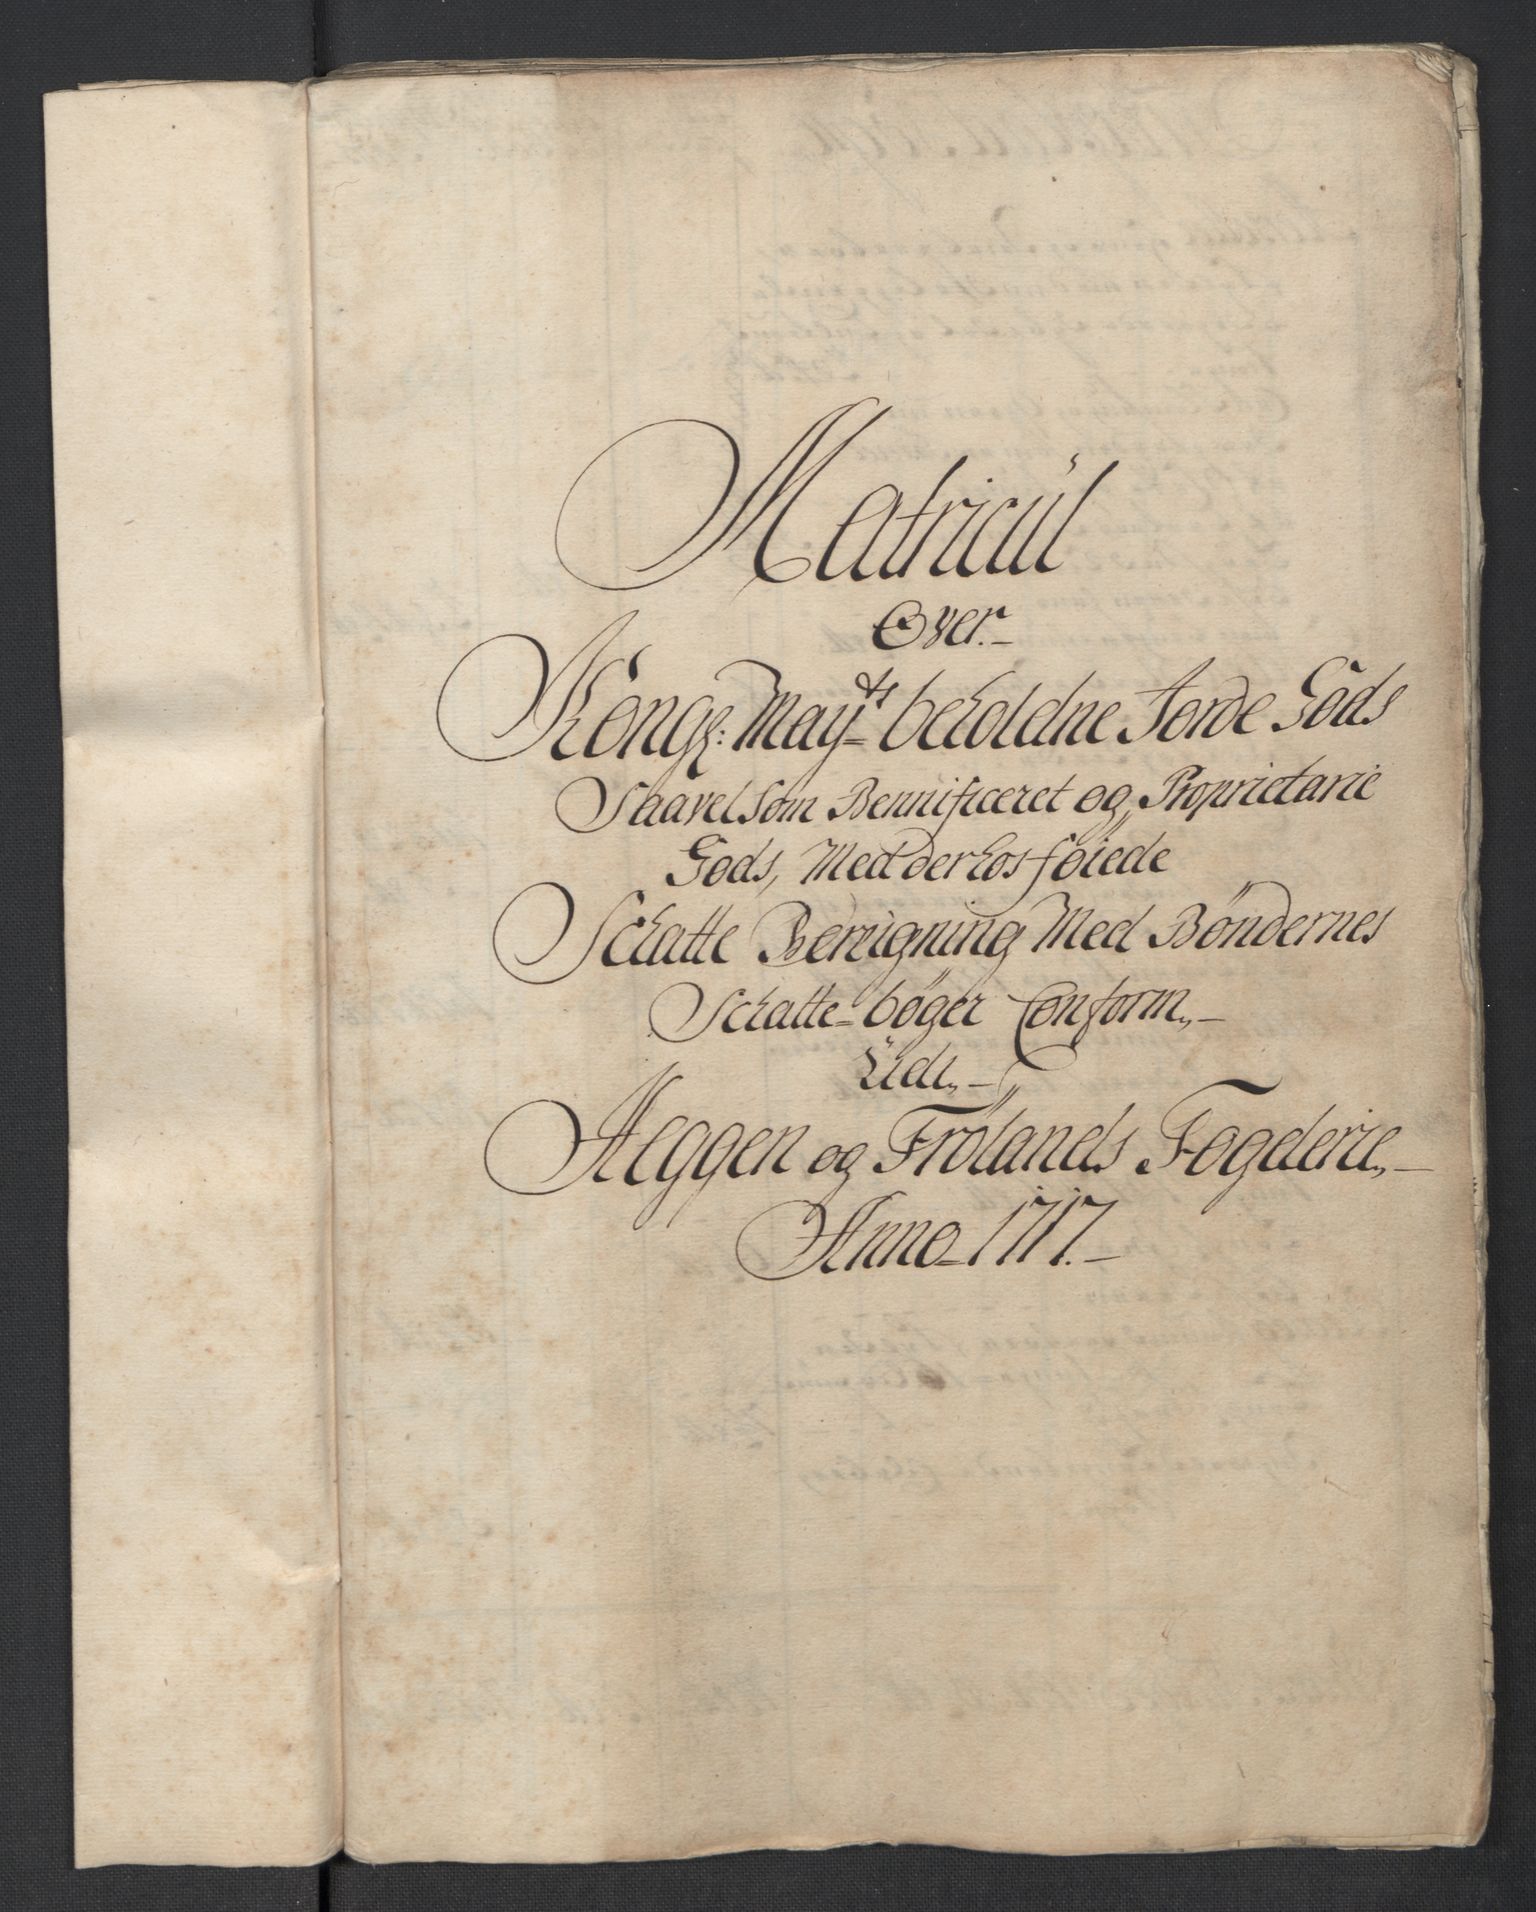 Matricül
Over.-
Kongl: May.ts beholdne Jorde Göds
Saavelsom Bennificeret og Proprietarie
Gods, Med derhos føiede
Schatte Bereigning Med Bøndernes
Schatte-bøger Conform,-
Udi,-
Heggen og Frølands Fogderie,-
Anno-1717.-